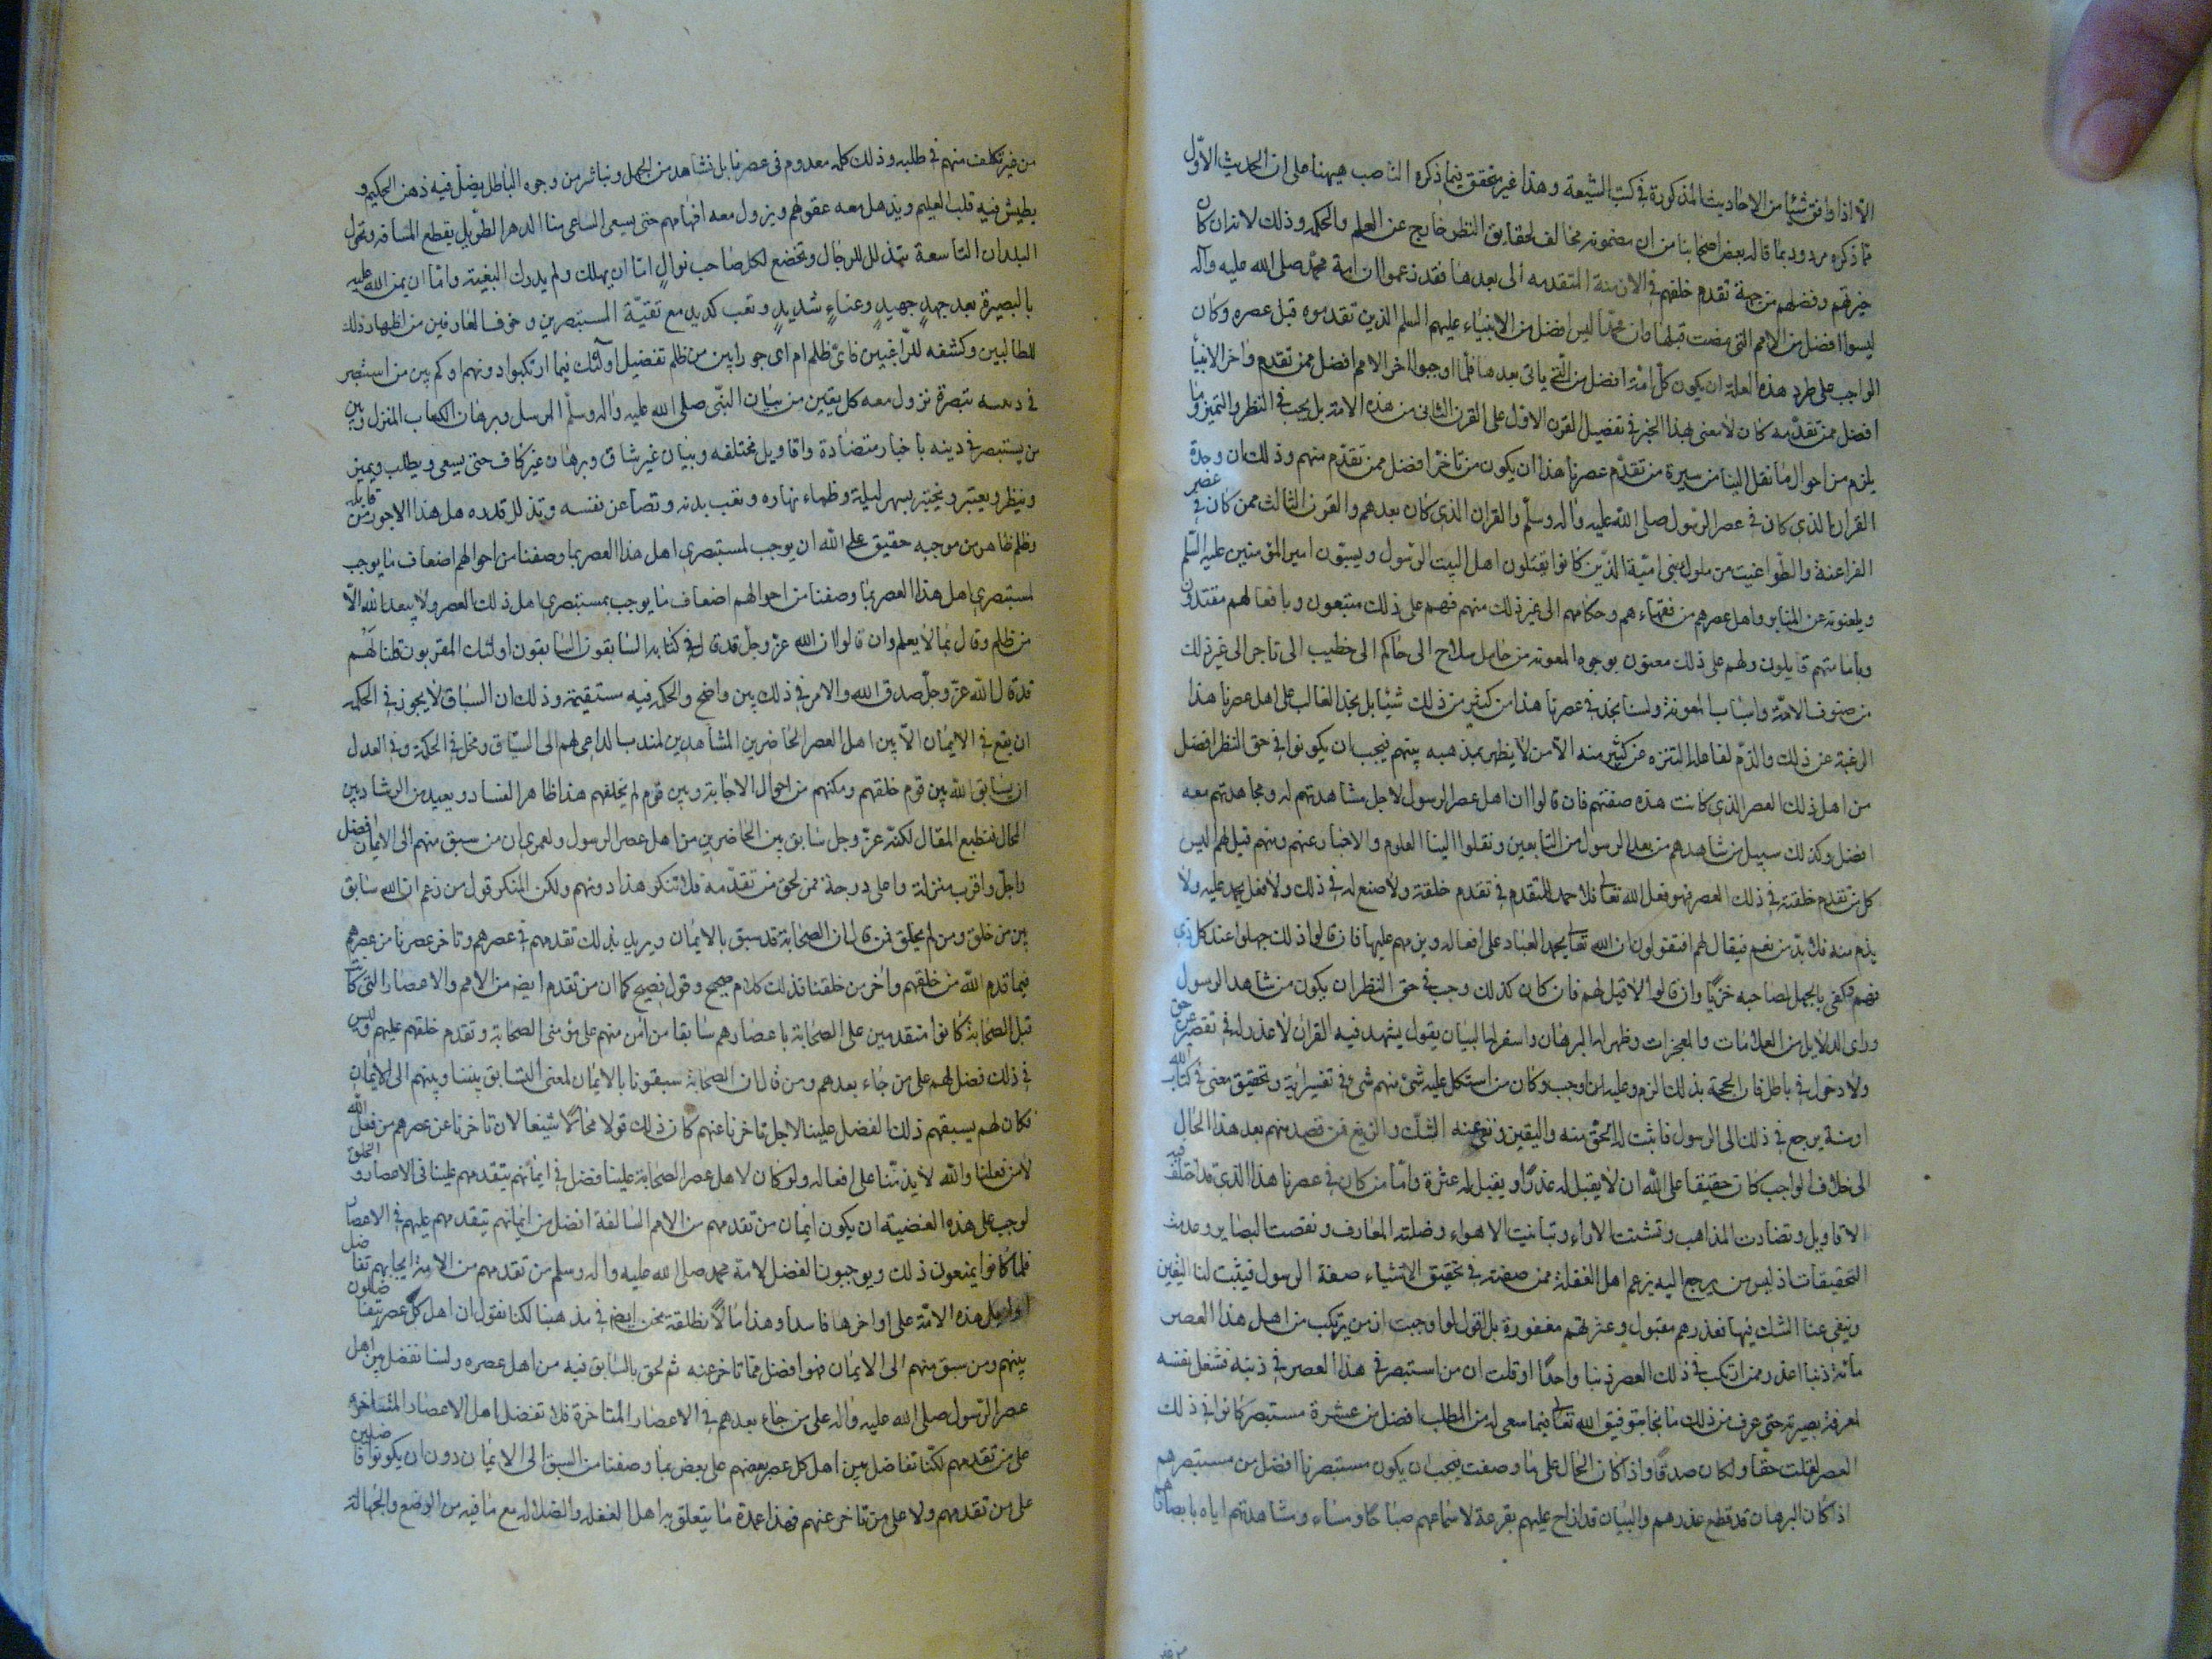 الا اذا وافق شيئا من الاحاديث المذكورة في كتب الشيعة وهذا غير متحقق فيما ذكره الناصب هيهنا على ان الحديث الاول
مما ذكره مردود بما قاله بعض اصحابنا من ان مضمونه مخالف لحقايق النظر خارج عن العلم والحكمه وذلك لانه ان كان
خيرتهم وفضلهم من جهة تقدم خلقهم في الازمنة المتقدمه الى بعدها فقد زعموا ان امة محمد صلى الله عليه وآله
ليسوا افضل من الامم التي مضت قبلها وان محمدا ليس افضل من الانبياء عليهم السلم الذين تقدموه قبل عصره وكان
الواجب على طرد هذه العلة ان يكون كل امة افضل من التي ياتى بعدها فلما اوجبوا اخر الامم افضل ممن تقدم واخر الانبيا
افضل ممن تقدمه كان لا معنى لهذا الخبر في تفضيل القرن الاول على القرن الثانى من هذه الامة بل يجب في النظر والتميز وما
يلزم من احوال ما نقل الينا من سيرة من تقدم عصرنا هذا ان يكون من تاخر افضل ممن تقدم منهم وذلك ان وجدنا
القران الذي كان في عصر الرسول صلى الله عليه واله وسلم والقران الذي كان بعدهم والقرن الثالث ممن كان في عصر
الفراعنة والطواغيت من ملوك بني امية الذين كانوا يقتلون اهل البيت الرسول ويسبون امير المؤمنين عليه السلم
ويلعنونه عن المنابر واهل عصرهم من فقهاءهم وحكامهم الى غير ذلك منهم فهم على ذلك متبعون وبافعالهم مقتدون
وبامامتهم قايلون ولهم على ذلك معينون بوجوه المعونه من حامل سلاح الى حاكم الى خطيب الى تاجر الى غير ذلك
من صنوف الامة واسباب المعونة ولسنا نجد في عصرنا هذا من كثير من ذلك شيئا بل نجد الغالب على اهل عصرنا هذا
الرغبة عن ذلك والذم لفاعله والتنزه عن كثير منه الا من لا يظهر بمذهبه بينهم فيجب ان يكونوا في حق النظر افضل
من اهل ذلك العصر الذي كانت هذه صفتهم فان قالوا ان اهل عصر الرسول لاجل مشاهدتهم له ومجاهدتهم معه
افضل وكذلك سبيل من شاهدهم من بعد الرسول من التابعين ونقلوا الينا العلوم والاخبار عنهم ومنهم قيل لهم اليس
كل من تقدم خلقته في ذلك العصر فهو فعل الله تعالى فلا حمد للمتقدم في تقدم خلقة ولا صنع له في ذلك ولا فعل يحمد عليه ولا
يذم منه فلا بد من نعم فيقال لهم افتقولون ان الله تعالى يحمد العباد على افعاله ويذمهم عليها فان قالوا ذلك جهلوا عند كل ذي
فهم وكفى بالجهل لصاحبه خزيا وان قالوا لا قيل لهم فان كان كذلك وجب في حق النظر ان يكون من شاهد الرسول
وراى الدلايل من العلامات والمعجزات وظهر له البرهان واسفر له البيان بقول يشهد فيه القران لا عذر له في تقصير عن حق
ولا دخول في باطل فان الحجة بذلك الزم وعليه اوجب وكان من استشكل عليه شئ منهم شئ في تفسير اية وتحقيق معنى في كتاب الله
او سنة يرجع في ذلك الى الرسول فاثبت له الحق منه واليقين ونفى عنه الشك والزيغ فمن قصد منهم بعد هذا الحال
الى خلاف الواجب كان حقيقا على الله ان لا يقبل له عذرا ويقيل له عثرة واما من كان في عصرنا هذا الذي قد اختلف فيه
الاقاويل وتضادت المذاهب وتشتت الاراء وتباينت الاهواء وضلت المعارف ونقصت البصاير وعدمت
التحقيقات اذ ليس من يرجع اليه يزعم اهل الغفلة ممن صفته في تحقيق الاشياء صفة الرسول فيثبت لنا اليقين
وينفى عنا الشك فيها فعذرهم مقبول وعزلهم مغفورة بل القول لو اوجبت ان من يرتكب من اهل هذا العصر
مأئة ذنبا اعذر ممن ارتكب في ذلك العصر ذنبا واحدا او قلت ان من استبصر في هذا العصر في دينه فشغل نفسه
لمعرفة بصيرته حتى عرف من ذلك ما نجا بتوفيق الله تعالى فيما سعى له من المطلب افضل من عشرة مستبصر كانوا في ذلك
العصر لقلت حقا ولكان صدقا واذا كان الحال على ما وصفت فيجب ان يكون مستبصرنا افضل من مستبصرهم
اذا كان البرهان قد قطع عذرهم والبيان قد ازاح عليهم بقرعة لاسماعهم صباحا ومساء ومشاهدتهم اياه بابصارهم
من غير
من غير تكلف منهم في طلبه وذلك كله معدوم في عصرنا بل نشاهد من الجهل ونباشر من وجوه الباطل يضل فيه ذهن الحكيم و
يطيش فيه قلب العليم ويذهل معه عقولهم ويزول معه افهامهم حتى يسعى الساعى منا الدهر الطويل يقطع المسافه وتحول
البلدان الشاسعة يتذلل للرجال ويخضع لكل صاحب نوال اما ان يهلك ولم يدرك البغية واما ان يمن الله عليه
بالبصيرة بعد جهد جهيد وعناء شديد وتعب كديد مع تقية المستبصرين وخوف العارفين من اظهار ذلك
للطالبين وكشفه للراغبين فاى ظلم ام اى جور ابين من ظلم تفضيل اولئك فيما ارتكبوا دونهم او كم بين من استبصر
في دينه تبصرة نزول معه كل يقين من بيان النبى صلى الله عليه واله وسلم المرسل وبرهان الكتاب المنزل وبين
من يستبصر في دينه باخبار متضادة واقاويل مختلفه وبيان غير شاف وبرهان غير كاف حتى يسعى ويطلب ويميز
وينظر ويعتبر ويختبر بسهر ليلة وظماء نهاره وتعب بدنه وتصاغر نفسه وتذلل قدره هل هذا الا جور من قايله
وظلم ظاهر من موجبه حقيق على الله ان يوجب لمستبصرى اهل هذا العصر بما وصفنا من احوالهم اضعاف ما يوجب
لمستبصرى اهل هذا العصر بما وصفنا من احوالهم اضعاف ما يوجب بمستبصرى اهل ذلك العصر ولا يبعد الله الا
من ظلم وقال بما لا يعلم وان قالوا ان الله عز وجل قد قال في كتابه السابقون السابقون اولئك المقربون قلنا لهم
قد قال الله عز وجل صدق الله والامر في ذلك بين واضح والحكم فيه مستقيمة وذلك ان السباق لا يجوز في الحكمه
ان يقع في الايمان الا بين اهل العصر الحاضرين المشاهدين لمندب الداعى لهم الى السباق ومحل في الحكمة وفي العدل
ان يسابق الله بين قوم خلقهم ومكنهم من احوال الاجابة وبين قوم لم يخلقهم هذا ظاهر الفساد وبعيد من الرشاد بين
المحال فظيع المقال لكنه عز وجل سابق بين الحاضرين من اهل عصر الرسول ولعمري ان من سبق منهم الى الايمان افضل
واجل واقرب منزلة واعلى درجة ممن لحق من تقدمه فلا تنكر هذا دونهم ولكن المنكر قول من زعم ان الله سابق
بين من خلق ومن لم يخلق فمن قال ان الصحابة قد سبق بالايمان ويريد بذلك تقدمهم في عصرهم وتاخر عصرنا من عصرهم
فيما قدم الله من خلقهم واخر من خلقنا فذلك كلام صحيح وقول فصيح كما ان من تقدم ايضا من الامم والاعصار التى كانت
قبل الصحابة كانوا متقدمين على الصحابة باعصارهم سابقا من امن منهم على مؤمنى الصحابة وتقدم خلقهم عليهم وليس
في ذلك فضل لهم على من جاء بعدهم ومن قال ان الصحابة سبقونا بالايمان لمعنى السابق بيننا وبينهم الى الايمان
فكان لهم بسبقهم ذلك الفضل علينا لاجل تاخرنا عنهم كان ذلك قولا محالا شنيعا لان تاخرنا عن عصرهم من فعل الله
لا من فعلنا والله لا يذمنا على افعاله ولو كان لاهل عصر الصحابة علينا فضل في ايمانهم بتقدمهم علينا فى الاعصار و الخلق
لوجب على هذه القضية ان يكون ايمان من تقدمهم من الامم السالفة افضل من ايمانهم بتقدمهم عليهم في الاعصار
فلما كانوا يمنعون ذلك ويوجبون الفضل لامة محمد صلى الله عليه واله وسلم من تقدمهم من الامة ايجابهم تفاضل
اوايل هذه الامة على اواخرها فاسدا وهذا ما لا نطلقه نحن ايضا في مذهبنا لكنا نقول ان اهل كل عصر يتفاضلون
بينهم ومن سبق منهم الى الايمان فهو افضل مما تاخر عنه ثم لحق بالسابق فيه من اهل عصره ولسنا نفضل بين اهل
عصر الرسول صلى الله عليه واله على من جاء بعدهم في الاعصار المتاخرة فلا تفضل اهل الاعصار المتاخرة
على من تقدمهم لكنا تفاضل بين اهل كل عصر بعضهم على بعض بما وصفنا من السبق الى الايمان دون ان يكونوا فاضلين
على من تقدمهم ولا على من تاخر عنهم فهذا عمدة ما يتعلق به اهل الغفله والضلاله مع ما فيه من الوضع والجهالة